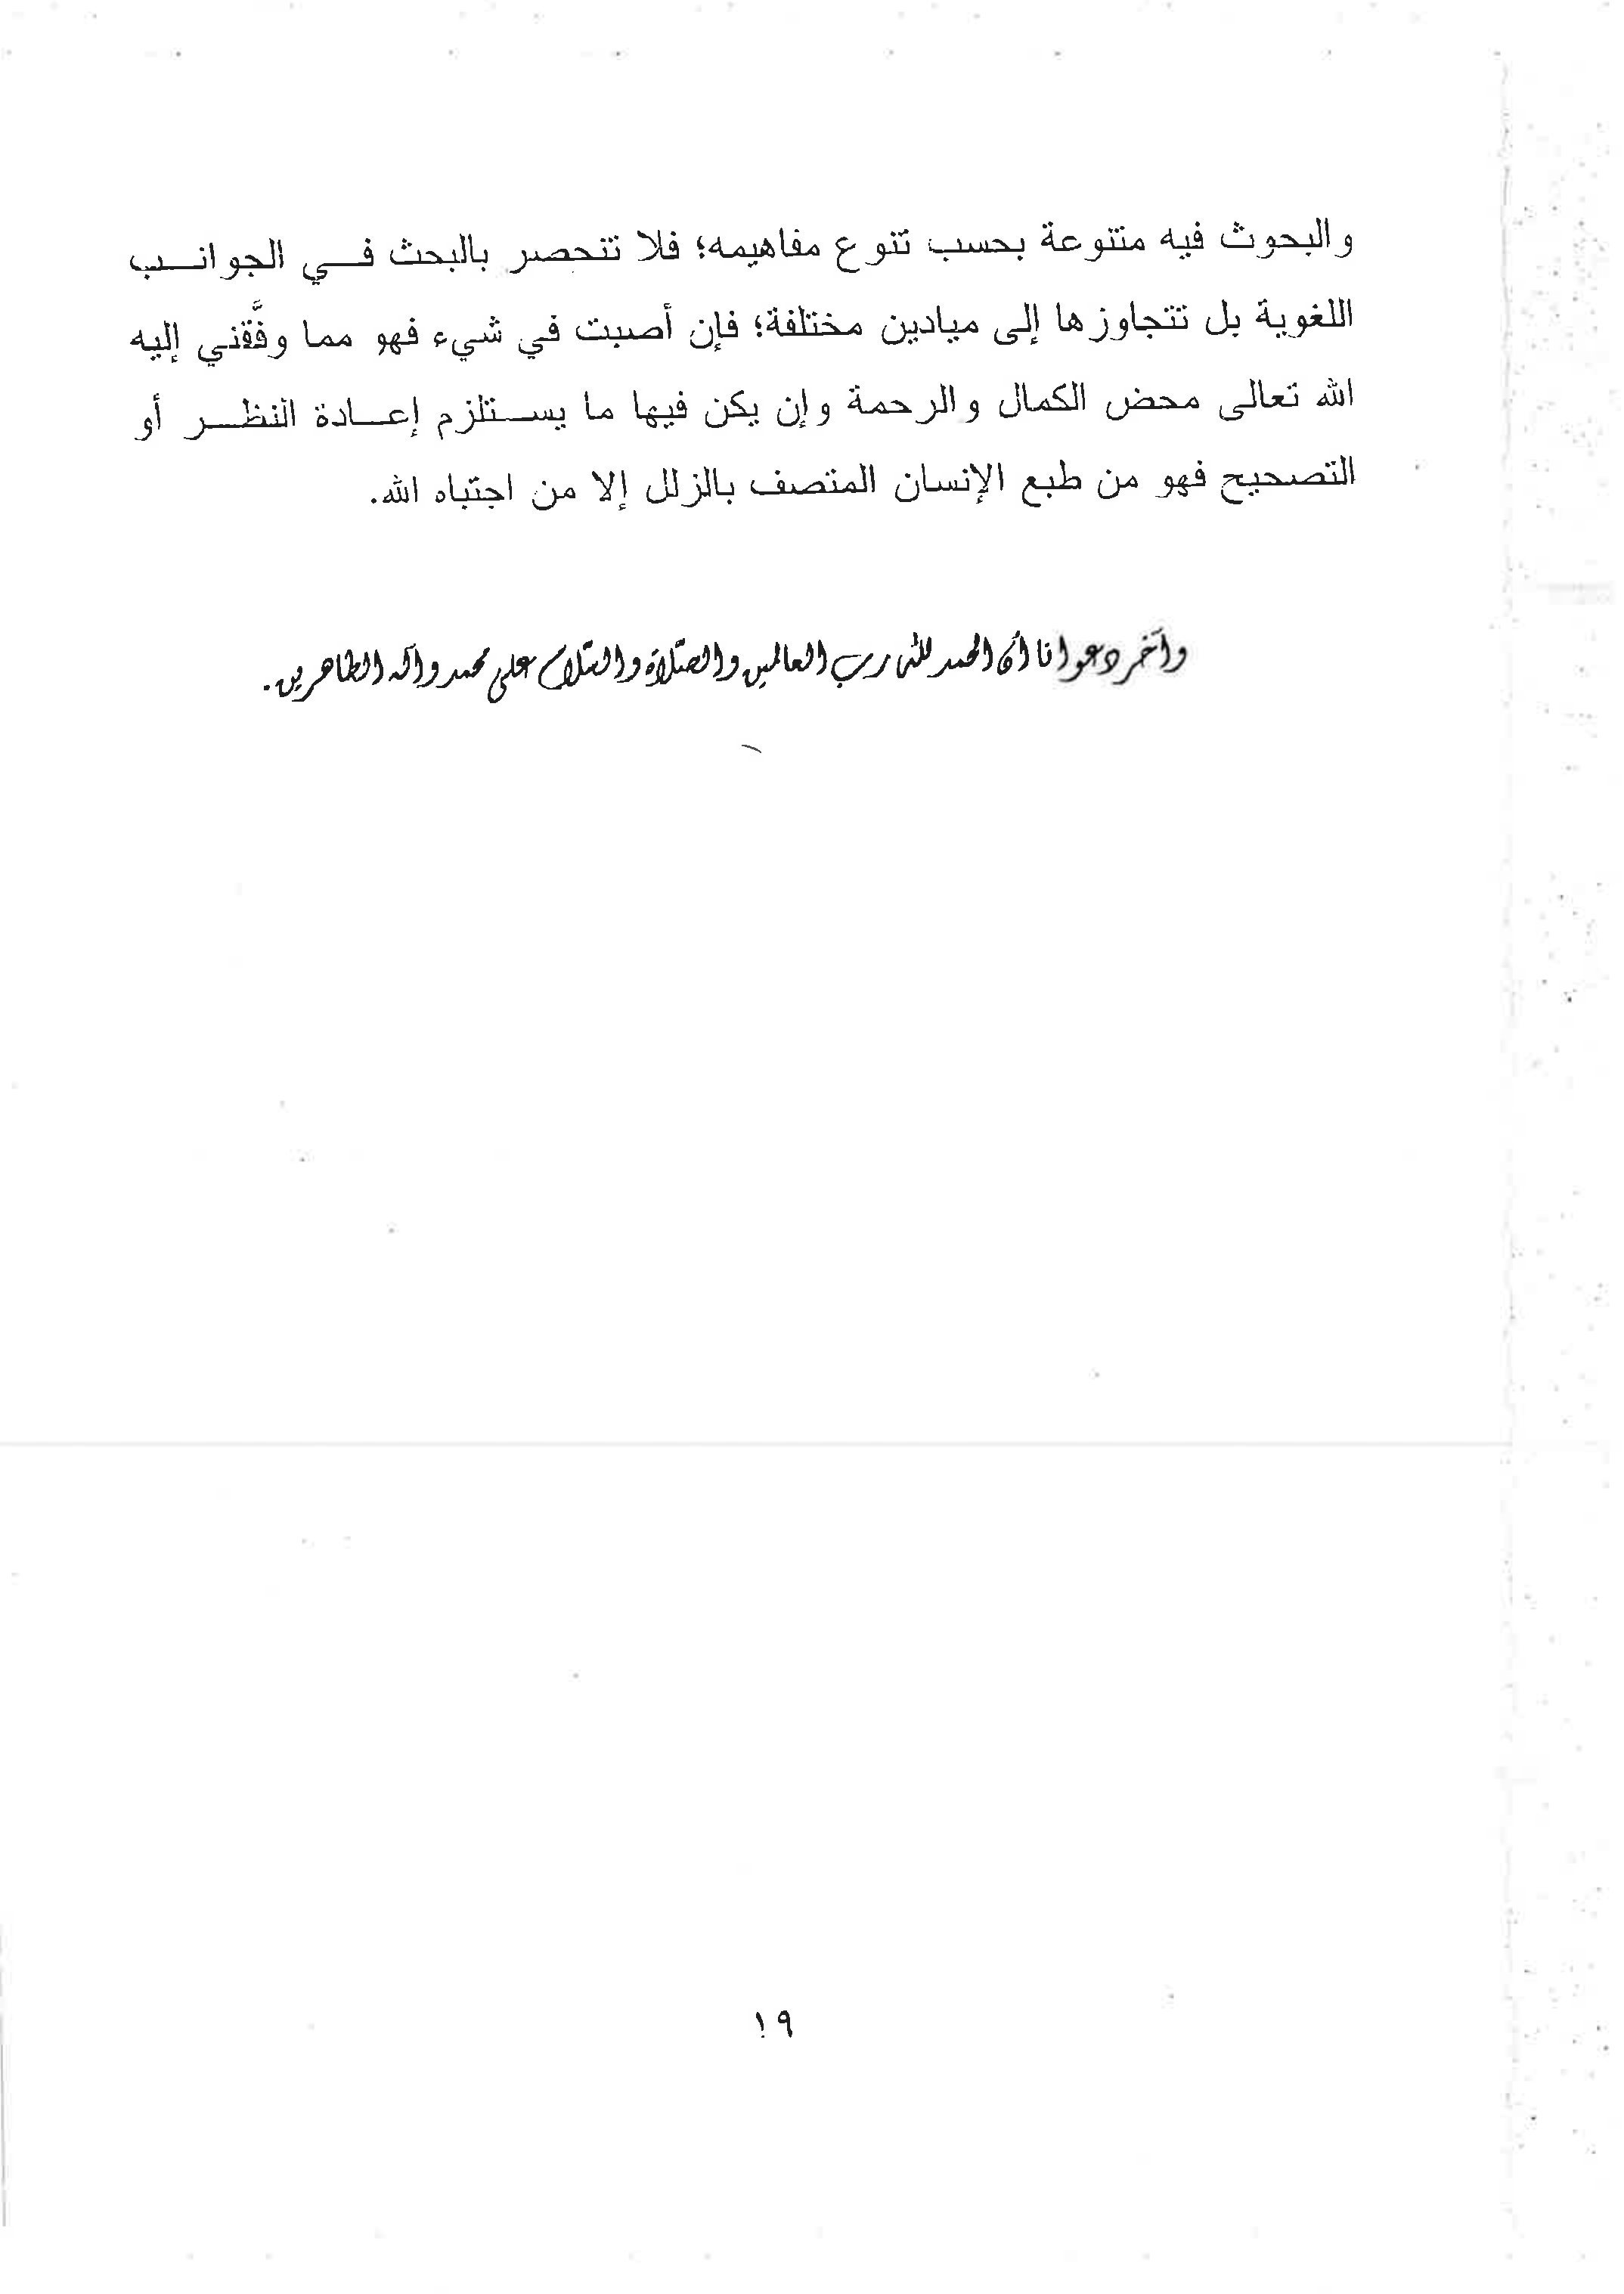 والبحوث فيه متنوعة بحسب تنوع مفاهيمه؛ فلا تنحصر بالبحث في الجوانب
اللغوية بل تتجاوزها إلى ميادين مختلفة؛ فإن أصبت في شيء فهو مما وفَّقني إليه
الله تعالى محض الكمال والرحمة وإن يكن فيها ما يستلزم إعادة النظر أو
التصحيح فهو من طبع الإنسان المتصف بالزلل إلا من اجتباه الله.
وآخر دعوانا أن الحمد لله رب العالمين والصّلاة والسّلام على محمد وآله الطاهرين.
١٩